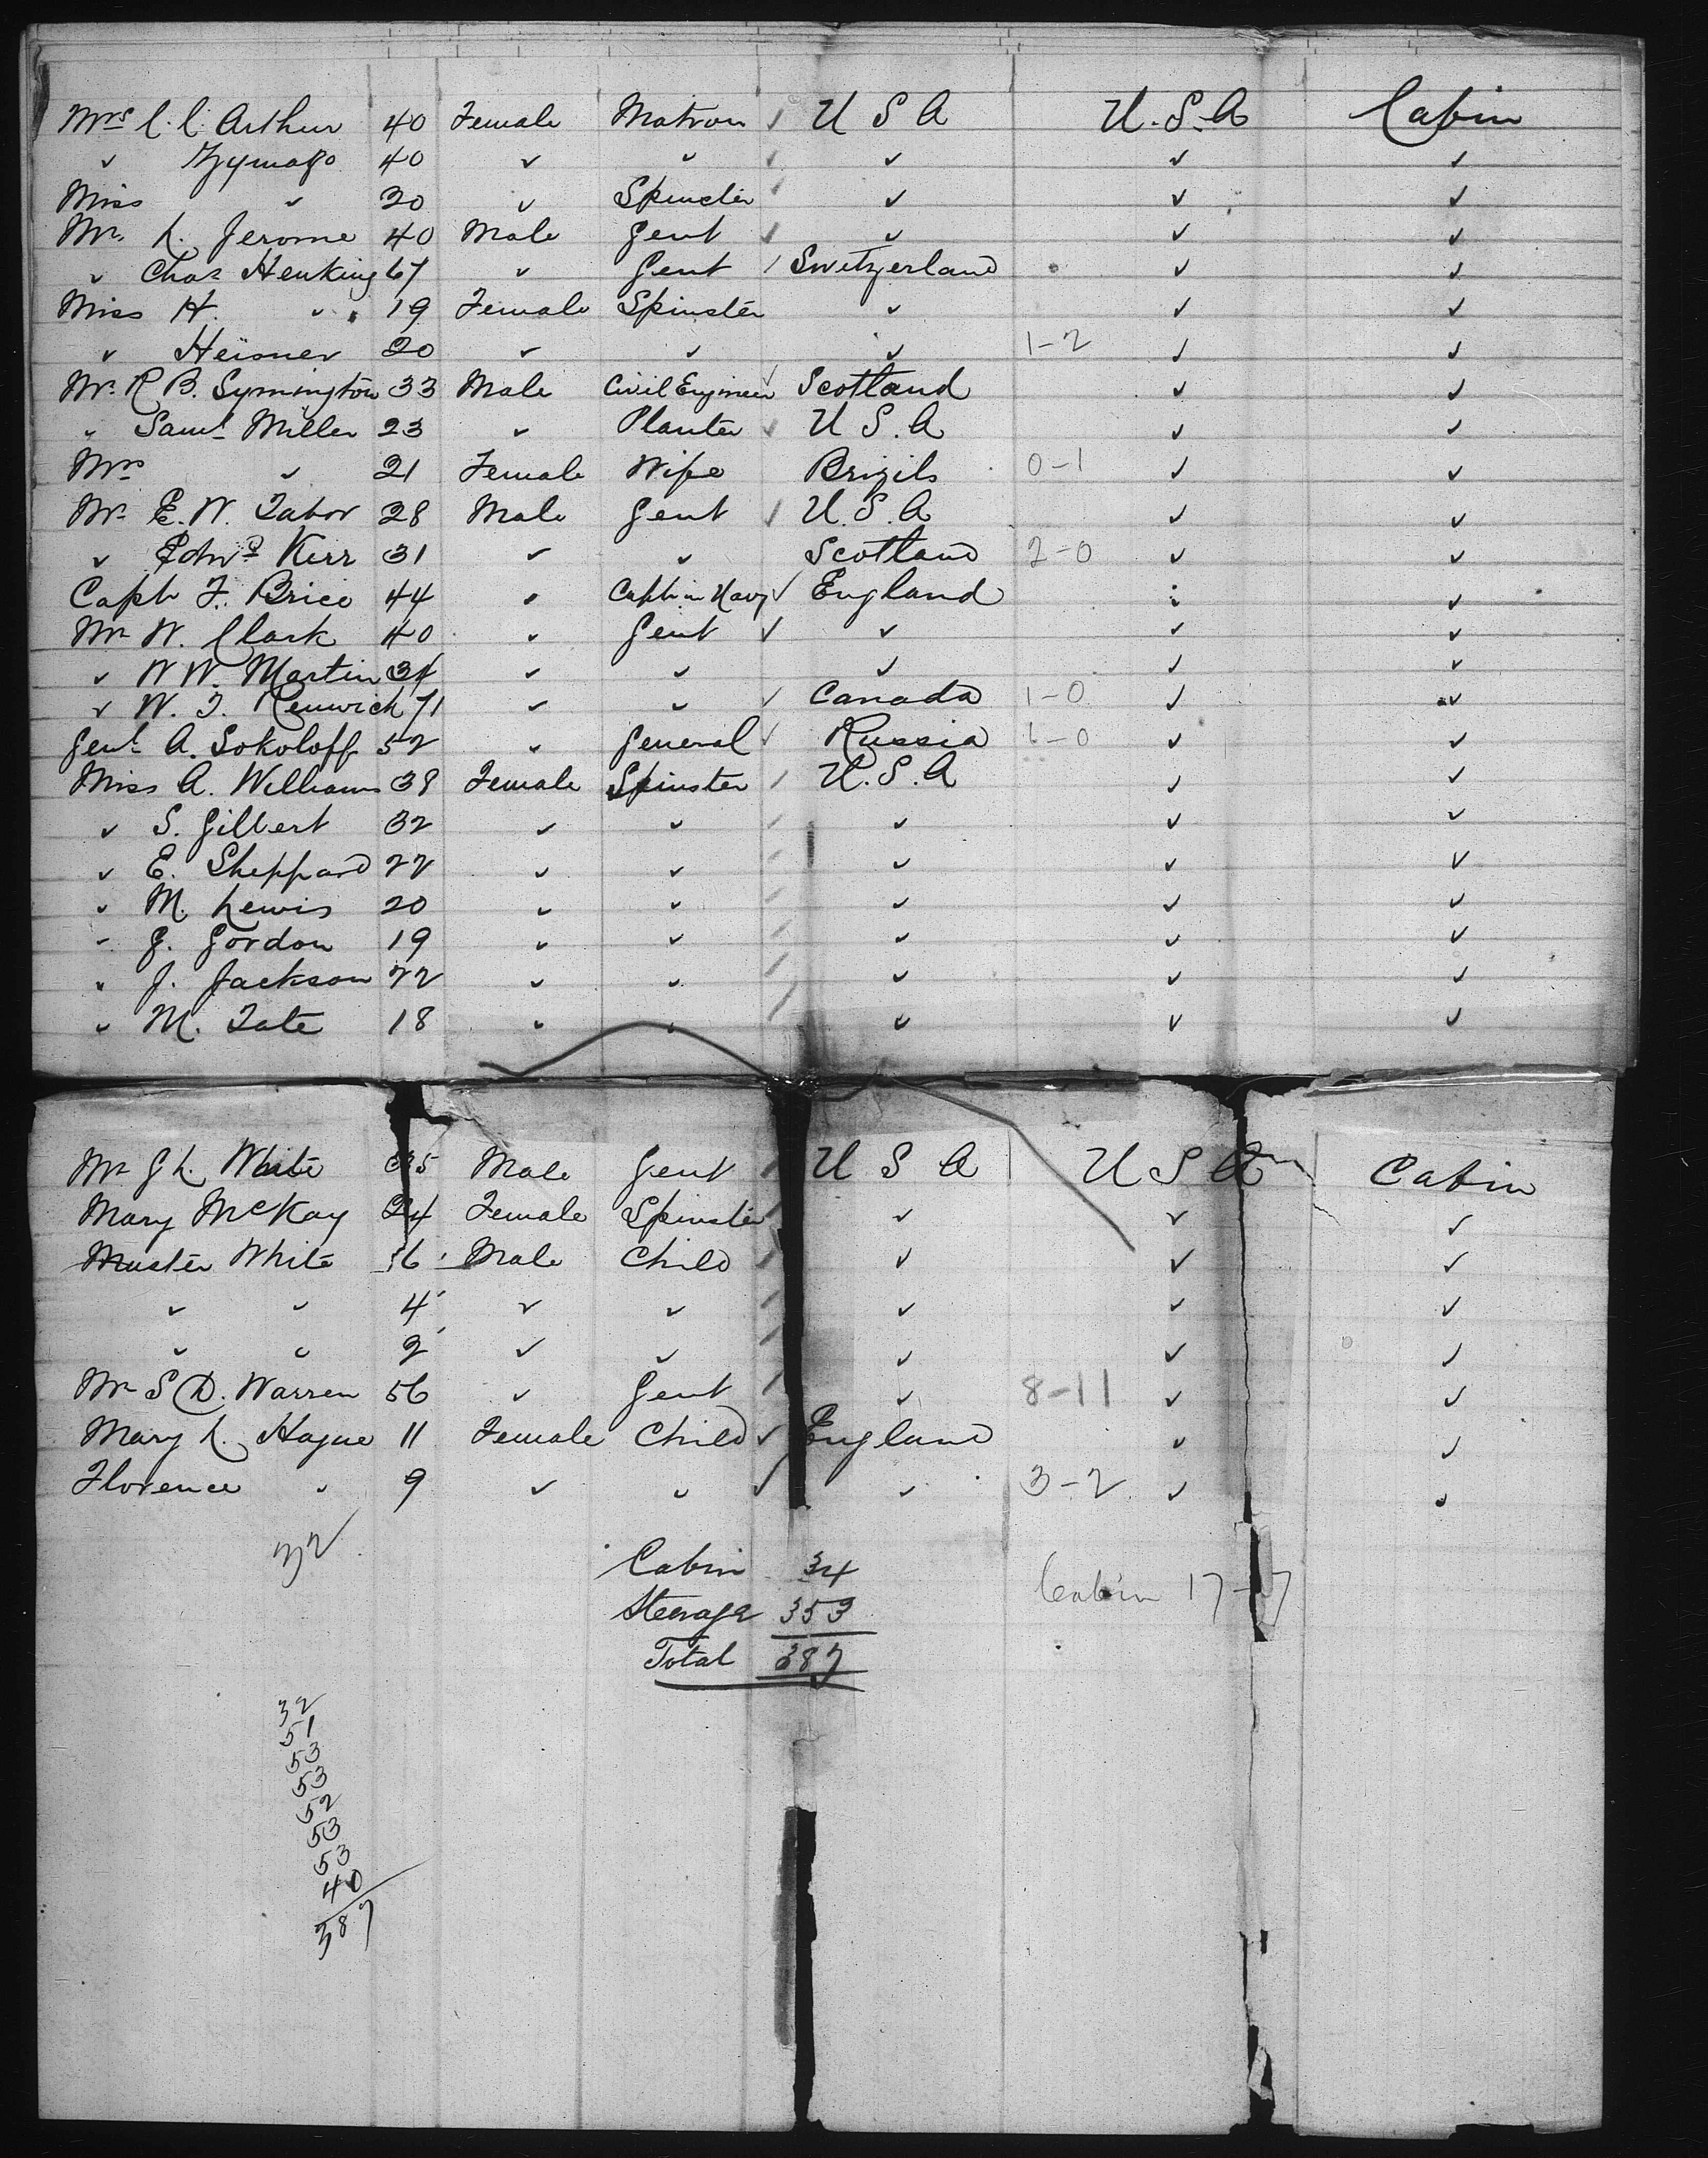 Mrs C. C. Arthur 40 Female Matron / U S A U. S. A Cabin
✓ 40 ✓ ✓ ✓ ✓ ✓ ✓
Miss ✓ 20 ✓ Spinster / ✓ ✓ ✓
Mr. L. Jerome 40 Male Gent / ✓ ✓ ✓
✓ Chas Henking 67 ✓ Gent / Switzerland ✓ ✓
Miss H. ✓ 19 Female Spinster ✓ ✓ ✓
✓ Heisner 20 ✓ ✓ ✓ 1-2 ✓ ✓
Mr. R B. Symington 33 Male Civil Engineer ✓ Scotland ✓ ✓
✓ Saml Miller 23 ✓ Planter ✓ U S. A ✓ ✓
Mrs ✓ 21 Female Wife Brizils 0-1 ✓ ✓
Mr E. W. Tabor 28 Male Gent / U. S. A ✓ ✓
✓ Edwd Kerr 31 ✓ ✓ Scotland 2-0 ✓ ✓
Capt F. Brice 44 ✓ Capt in Navy ✓ England ✓ ✓
Mr W. Clark 40 ✓ Gent ✓ ✓ ✓ ✓
✓ W W. Martin 34 ✓ ✓ ✓ ✓ ✓
✓ W. J. Renwick 71 ✓ ✓ ✓ Canada 1-0 ✓ ✓
Genl A. Sokoloff 52 ✓ General ✓ Russia 1-0 ✓ ✓
Miss A. Williams 38 Female Spinster / U. S. A ✓ ✓
✓ S. Gilbert 32 ✓ ✓ / ✓ ✓ ✓
✓ E. Sheppard 22 ✓ ✓ / ✓ ✓ ✓
✓ M. Lewis 20 ✓ ✓ / ✓ ✓ ✓
✓ G. Gordon 19 ✓ ✓ / ✓ ✓ ✓
✓ J. Jackson 22 ✓ ✓ / ✓ ✓ ✓
✓ M. Tate 18 ✓ ✓ / ✓ ✓ ✓
Mr G L. White 35 Male Gent / U S A U S A Cabin
Mary McKay 24 Female Spinster ✓ ✓ ✓
Master White 6 Male Child / ✓ ✓ ✓
✓ ✓ 4 ✓ ✓ / ✓ ✓ ✓
✓ ✓ 2 ✓ ✓ / ✓ ✓ ✓
Mr S D. Warren 56 ✓ Gent / ✓ 8-11 ✓ ✓
Mary L. Hague 11 Female Child ✓ England ✓ ✓
Florence ✓ 9 ✓ ✓ ✓ ✓ 3-2 ✓ ✓
32
Cabin 34
Steerage 353
Total 387
Cabin 17-17
32
51
53
53
52
53
53
40
387